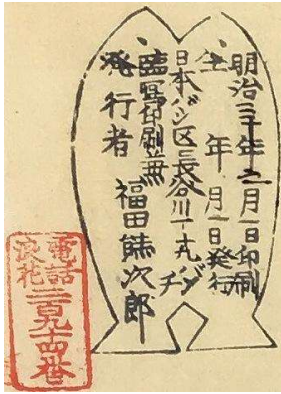 明治三十年二月一日印刷
仝年 月 日発行
日本バシ区長谷川丁十九バンチ
臨写印刷兼
発行者 福田熊次郎
電話
浪花
百九十四番